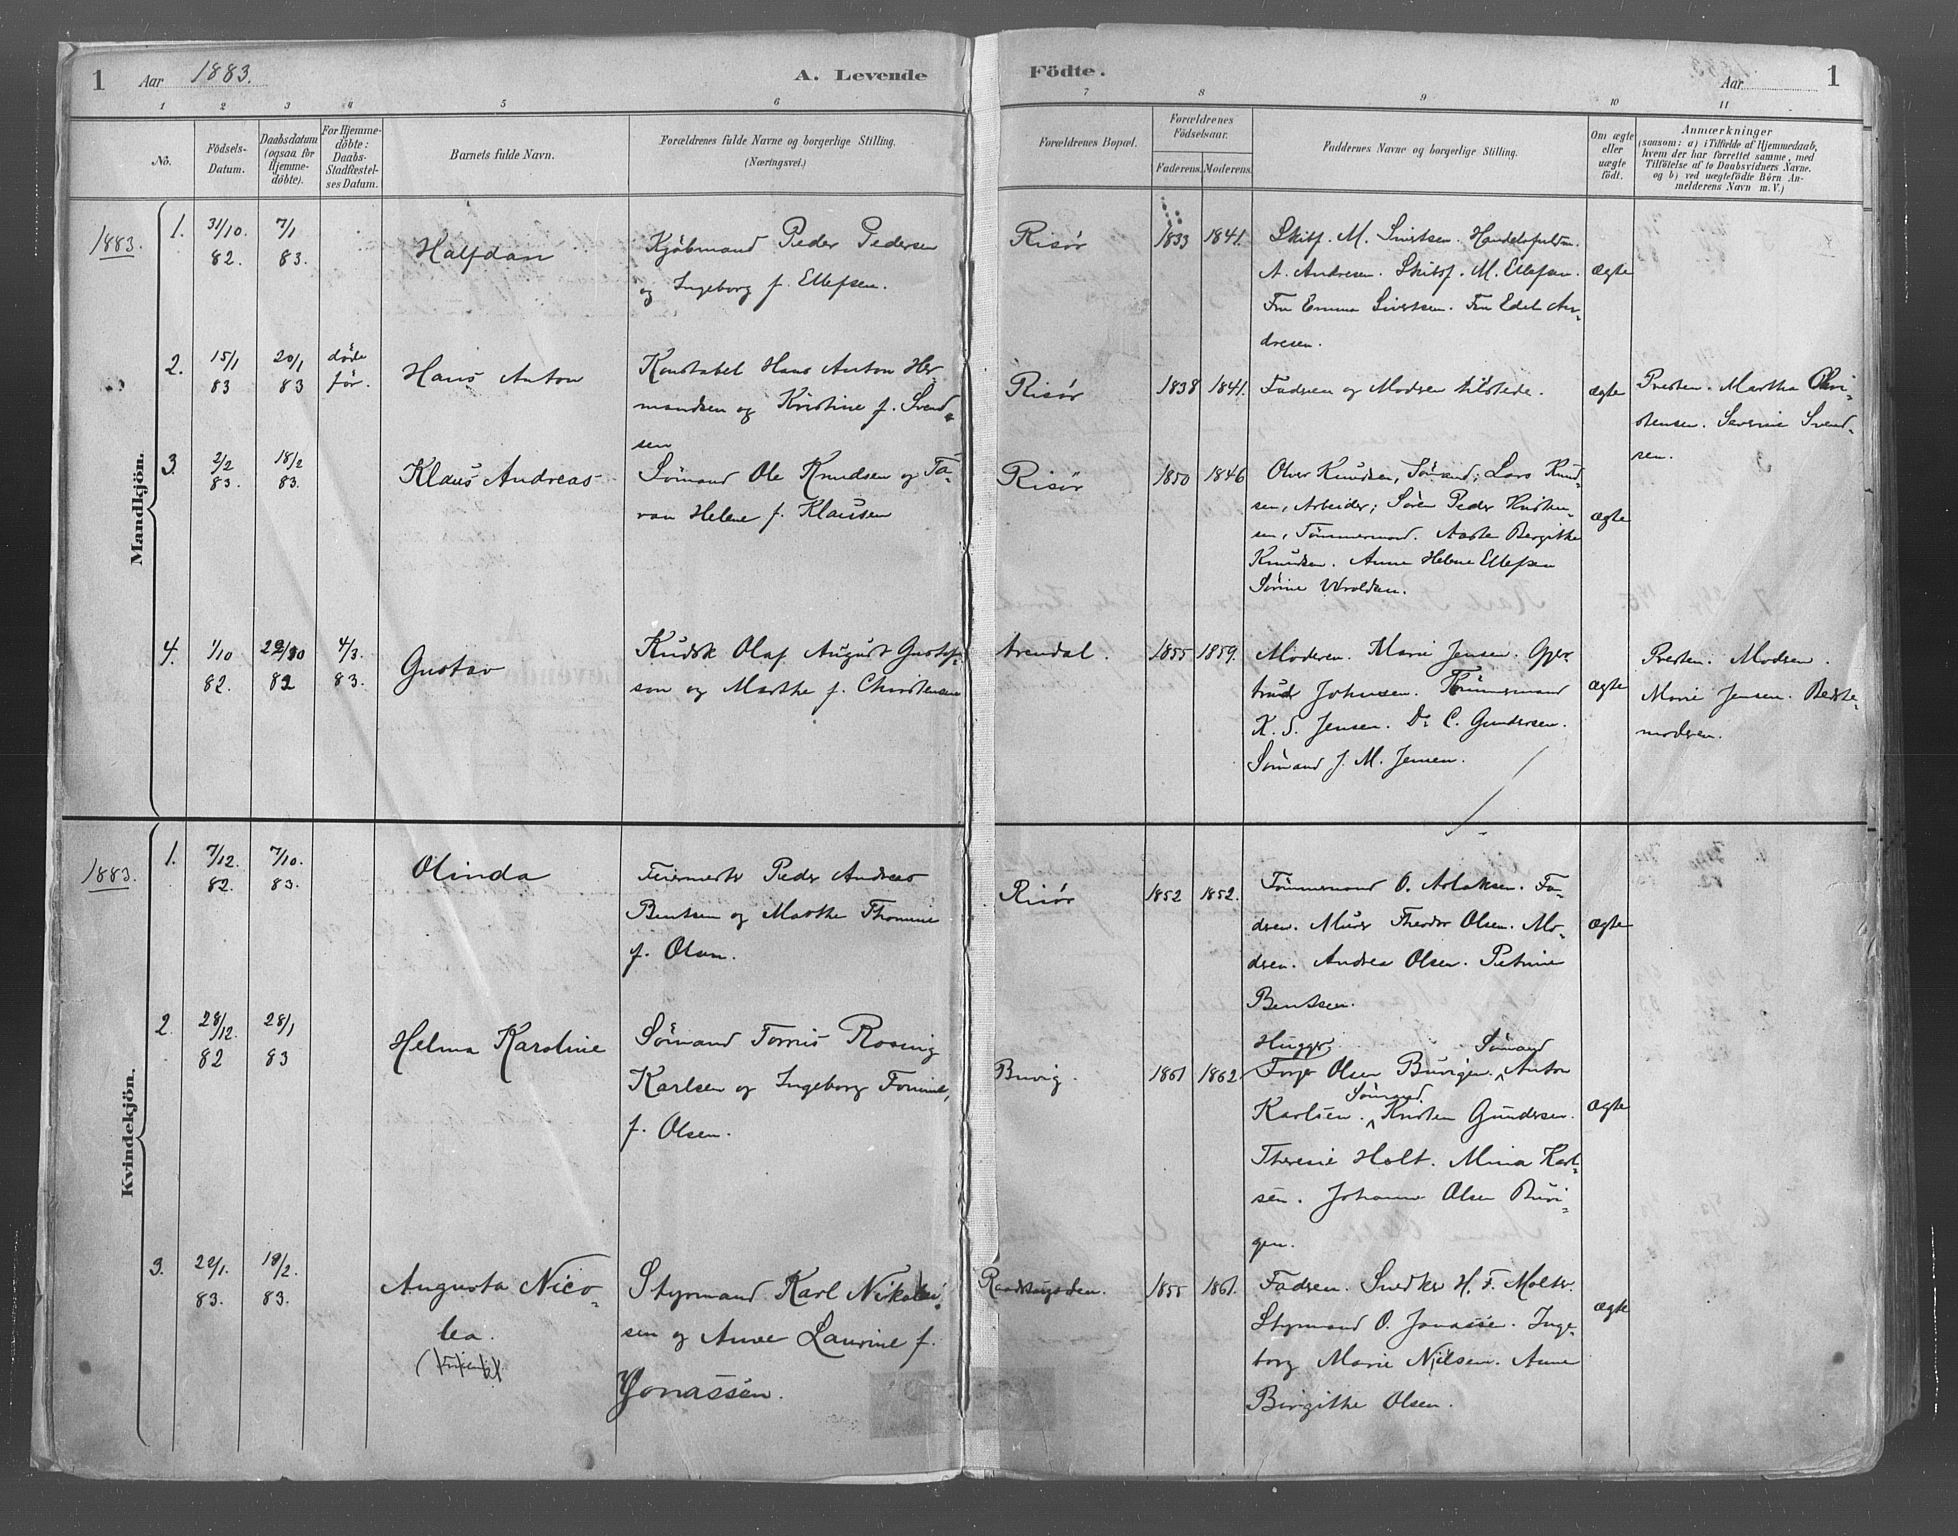 1 Aar 1883. A. Levende Födte. Aar 1
1 2 3 4 5 6 7 8 9 10 11
Nô.
Födsels-
Datum.
Daabsdatum
(ogsaa for
Hjemme-
döbte).
For Hjemme-
döbte:
Daabs-
Stadfæstel-
ses Datum.
Barnets fulde Navn.
Forældrenes fulde Navne og borgerlige Stilling.
(Næringsvei.)
Forældrenes Bopæl.
Forældrenes
Födselsaar.
Faderens. Moderens.
Faddernes Navne og borgerlige Stilling.
Om ægte
eller
uægte
födt.
Anmærkninger
(saasom: a) i Tilfælde af Hjemmedaab,
hvem der har forrettet samme, med
Tilföielse af to Daabsvidners Navne,
og b) ved uægtefödte Börn An-
melderens Navn m. V.)
Mandkjön.
1883.
1. 31/10 82. 7/1 83.
Halfdan
Kjøbmand Peder Pedersen
og Ingeborg f. Ellefsen.
Risør
1833 1841.
Skibsf. M. Sivertsen.
A. Andresen. Skibsf. M. Ellefsen.
Fru Emma Sivertsen. Fru Edel An-
dresen.
ægte
2. 15/1 83 20/1 83
døde
før.
Hans Anton
Konstabel Hans Anton Her
mandsen og Kristine f. Svend-
sen
Risør
1838 1841.
Faderen og Moderen tilstede.
ægte
Presten. Martha Chri-
stensen. Severine Svend-
sen.
3. 2/2 83. 18/2 83.
Klaus Andreas
Sømand Ole Knudsen og Ta-
ran Helene f. Klausen
Risør
1850 1846
Oliver Knudsen, Sømand; Lars Knud-
sen, Arbeider; Søren Peder Kristen-
sen, Tømmermand. Aaste Bergitte
Knudsen. Anne Helene Ellefsen
Sørine
ægte
4. 1/10 82. 29/10 82 4/3. 83.
Gustav
Kudsk Olaf August Gustaf-
son og Marthe f. Christensen
Arendal.
1855 1859.
Moderen. Marie Jensen. Gjer-
trud Johnsen. Tømmermand
K. S. Jensen. D. C. Gundersen.
Sømand J. M. Jensen.
ægte
Presten. Moderen.
Marie Jensen. Bedste-
moderen.
Kvindekjön.
1883.
1. 7/12. 82. 7/10. 83.
Olinda
Feiermester Peder Andreas
Bentsen og Marthe Thomine
f. Olsen.
Risør
1852 1852.
Tømmermand O. Aslaksen. Fa-
deren. Murer Theodor Olsen. Mo-
deren. Andrea Olsen. Petrine
Bentsen.
ægte
2. 28/12. 82 28/1 83
Helma Karoline
Sømand Tørris Rosing
Karlsen og Ingeborg Tomine,
f. Olsen.
Buvig.
1861 1862
Hugger, Sømand
Torje Olsen Buvigen. Anton
Sømand.
Karlsen. Kristen Gundersen.
Theresie Holt. Mina Karl-
sen. Johanne Olsen Buvi-
gen.
ægte
3. 22/1. 83. 18/2. 83.
Augusta Nico-
lea.
Styrmand Karl Nikolai-
sen og Anne Laurine f.
Jonassen.
1855 1861.
Faderen. Snedker H. F. Molter.
Styrmand O. Jonassen. Inge-
borg Marie Nielsen. Anne
Birgithe Olsen.
ægte